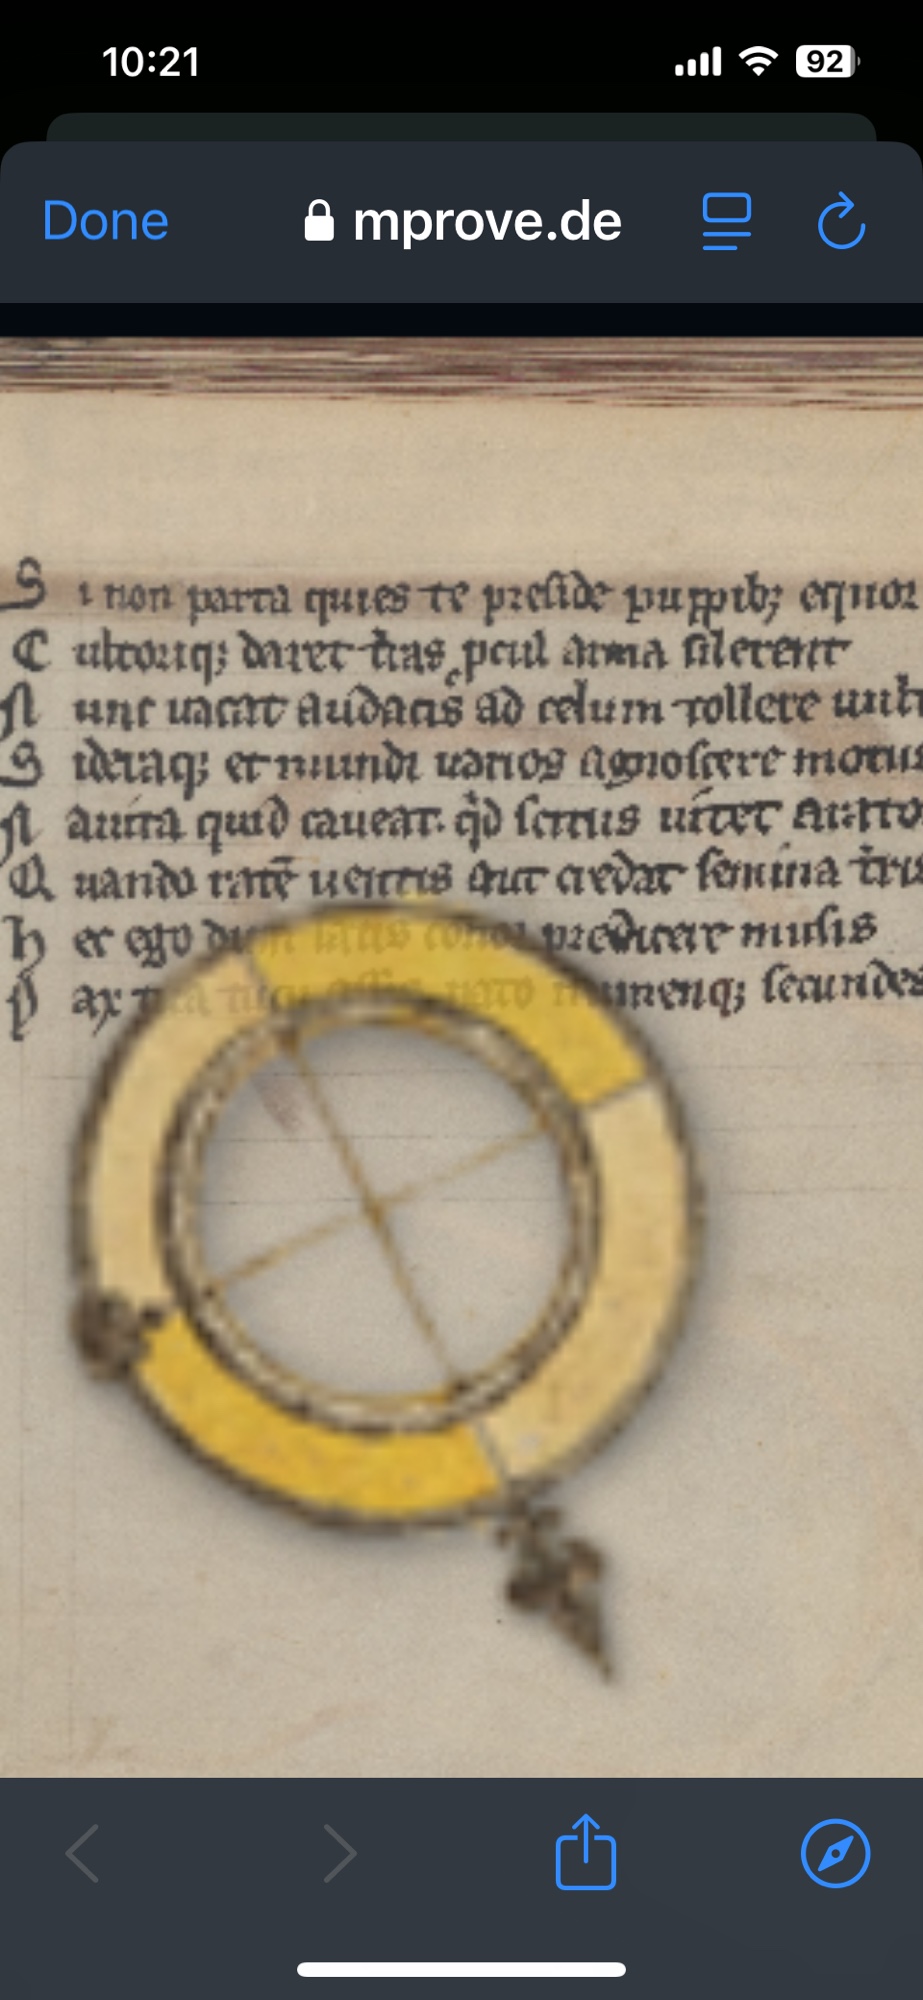 10:21
92
Done
mprove.de
S i non parta quies te preside puppib; equor
C ultoriq; daret t̄ras, pcul arma silerent
N unc uacat audacis ad celum tollere uult
S ideraq; et mundi uarios agnoscere motus
N auita quid caueat. qd̓ scitus uitet
Q uando ratē uentis aut credat semina t̄ris
h ec ego dum latiis conor predicere musis
P ax tua tuq; adsis nato numenq; secundes